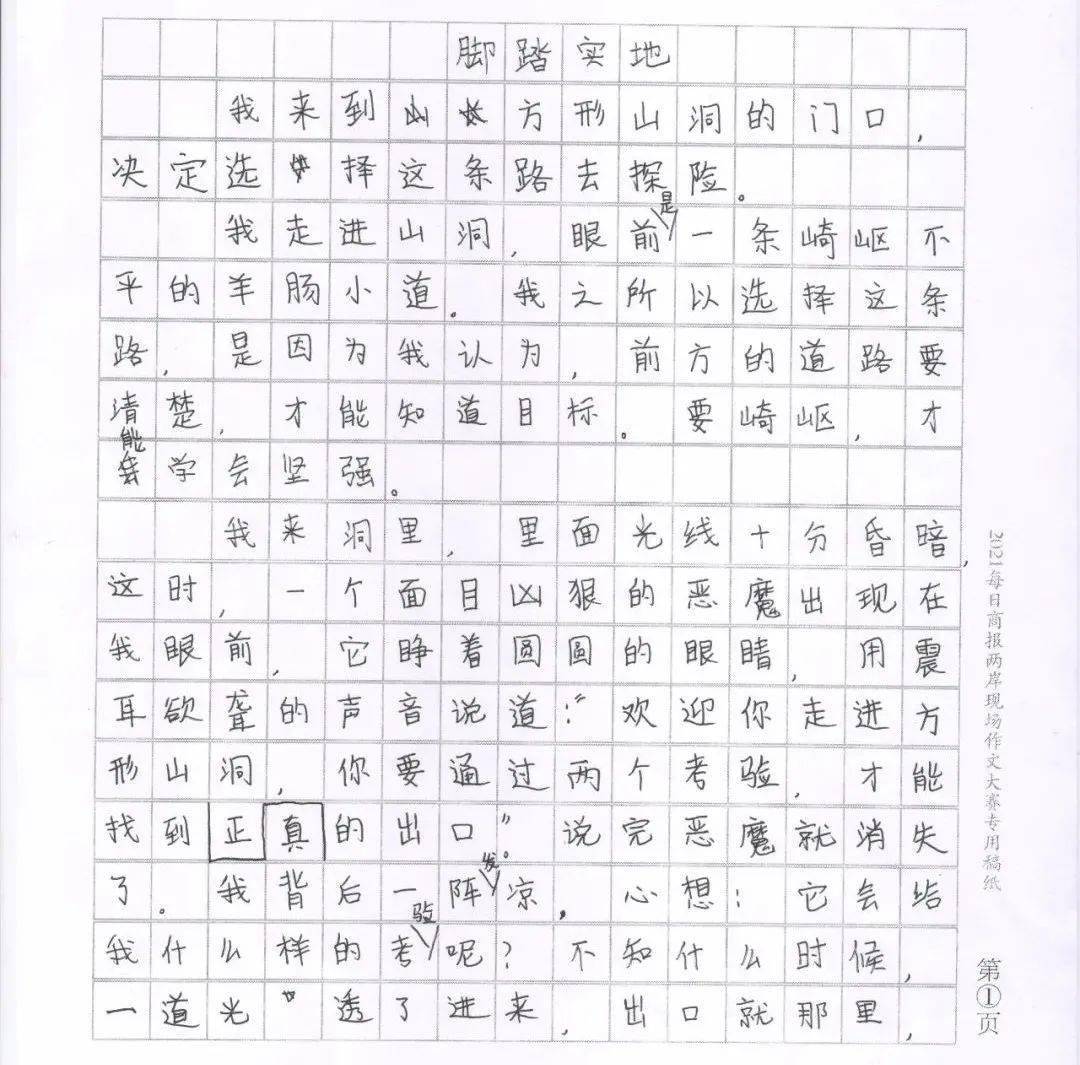 脚踏实地
我来到方形山洞的门口，
决定选择这条路去探险。
我走进山洞，眼前是一条崎岖不
平的羊肠小道。我之所以选择这条
路，是因为我认为，前方的道路要
清楚，才能知道目标。要崎岖，才
能学会坚强。
我来洞里，里面光线十分昏暗，
这时，一个面目凶狠的恶魔出现在
我眼前，它睁着圆圆的眼睛，用震
耳欲聋的声音说道：“欢迎你走进方
形山洞，你要通过两个考验，才能
找到正真的出口”。说完恶魔就消失
了。我背后一阵发凉，心想：它会给
我什么样的考验呢？不知什么时候，
一道光透了进来，出口就那里，
2021每日商报两岸现场作文大赛专用稿纸
第①页